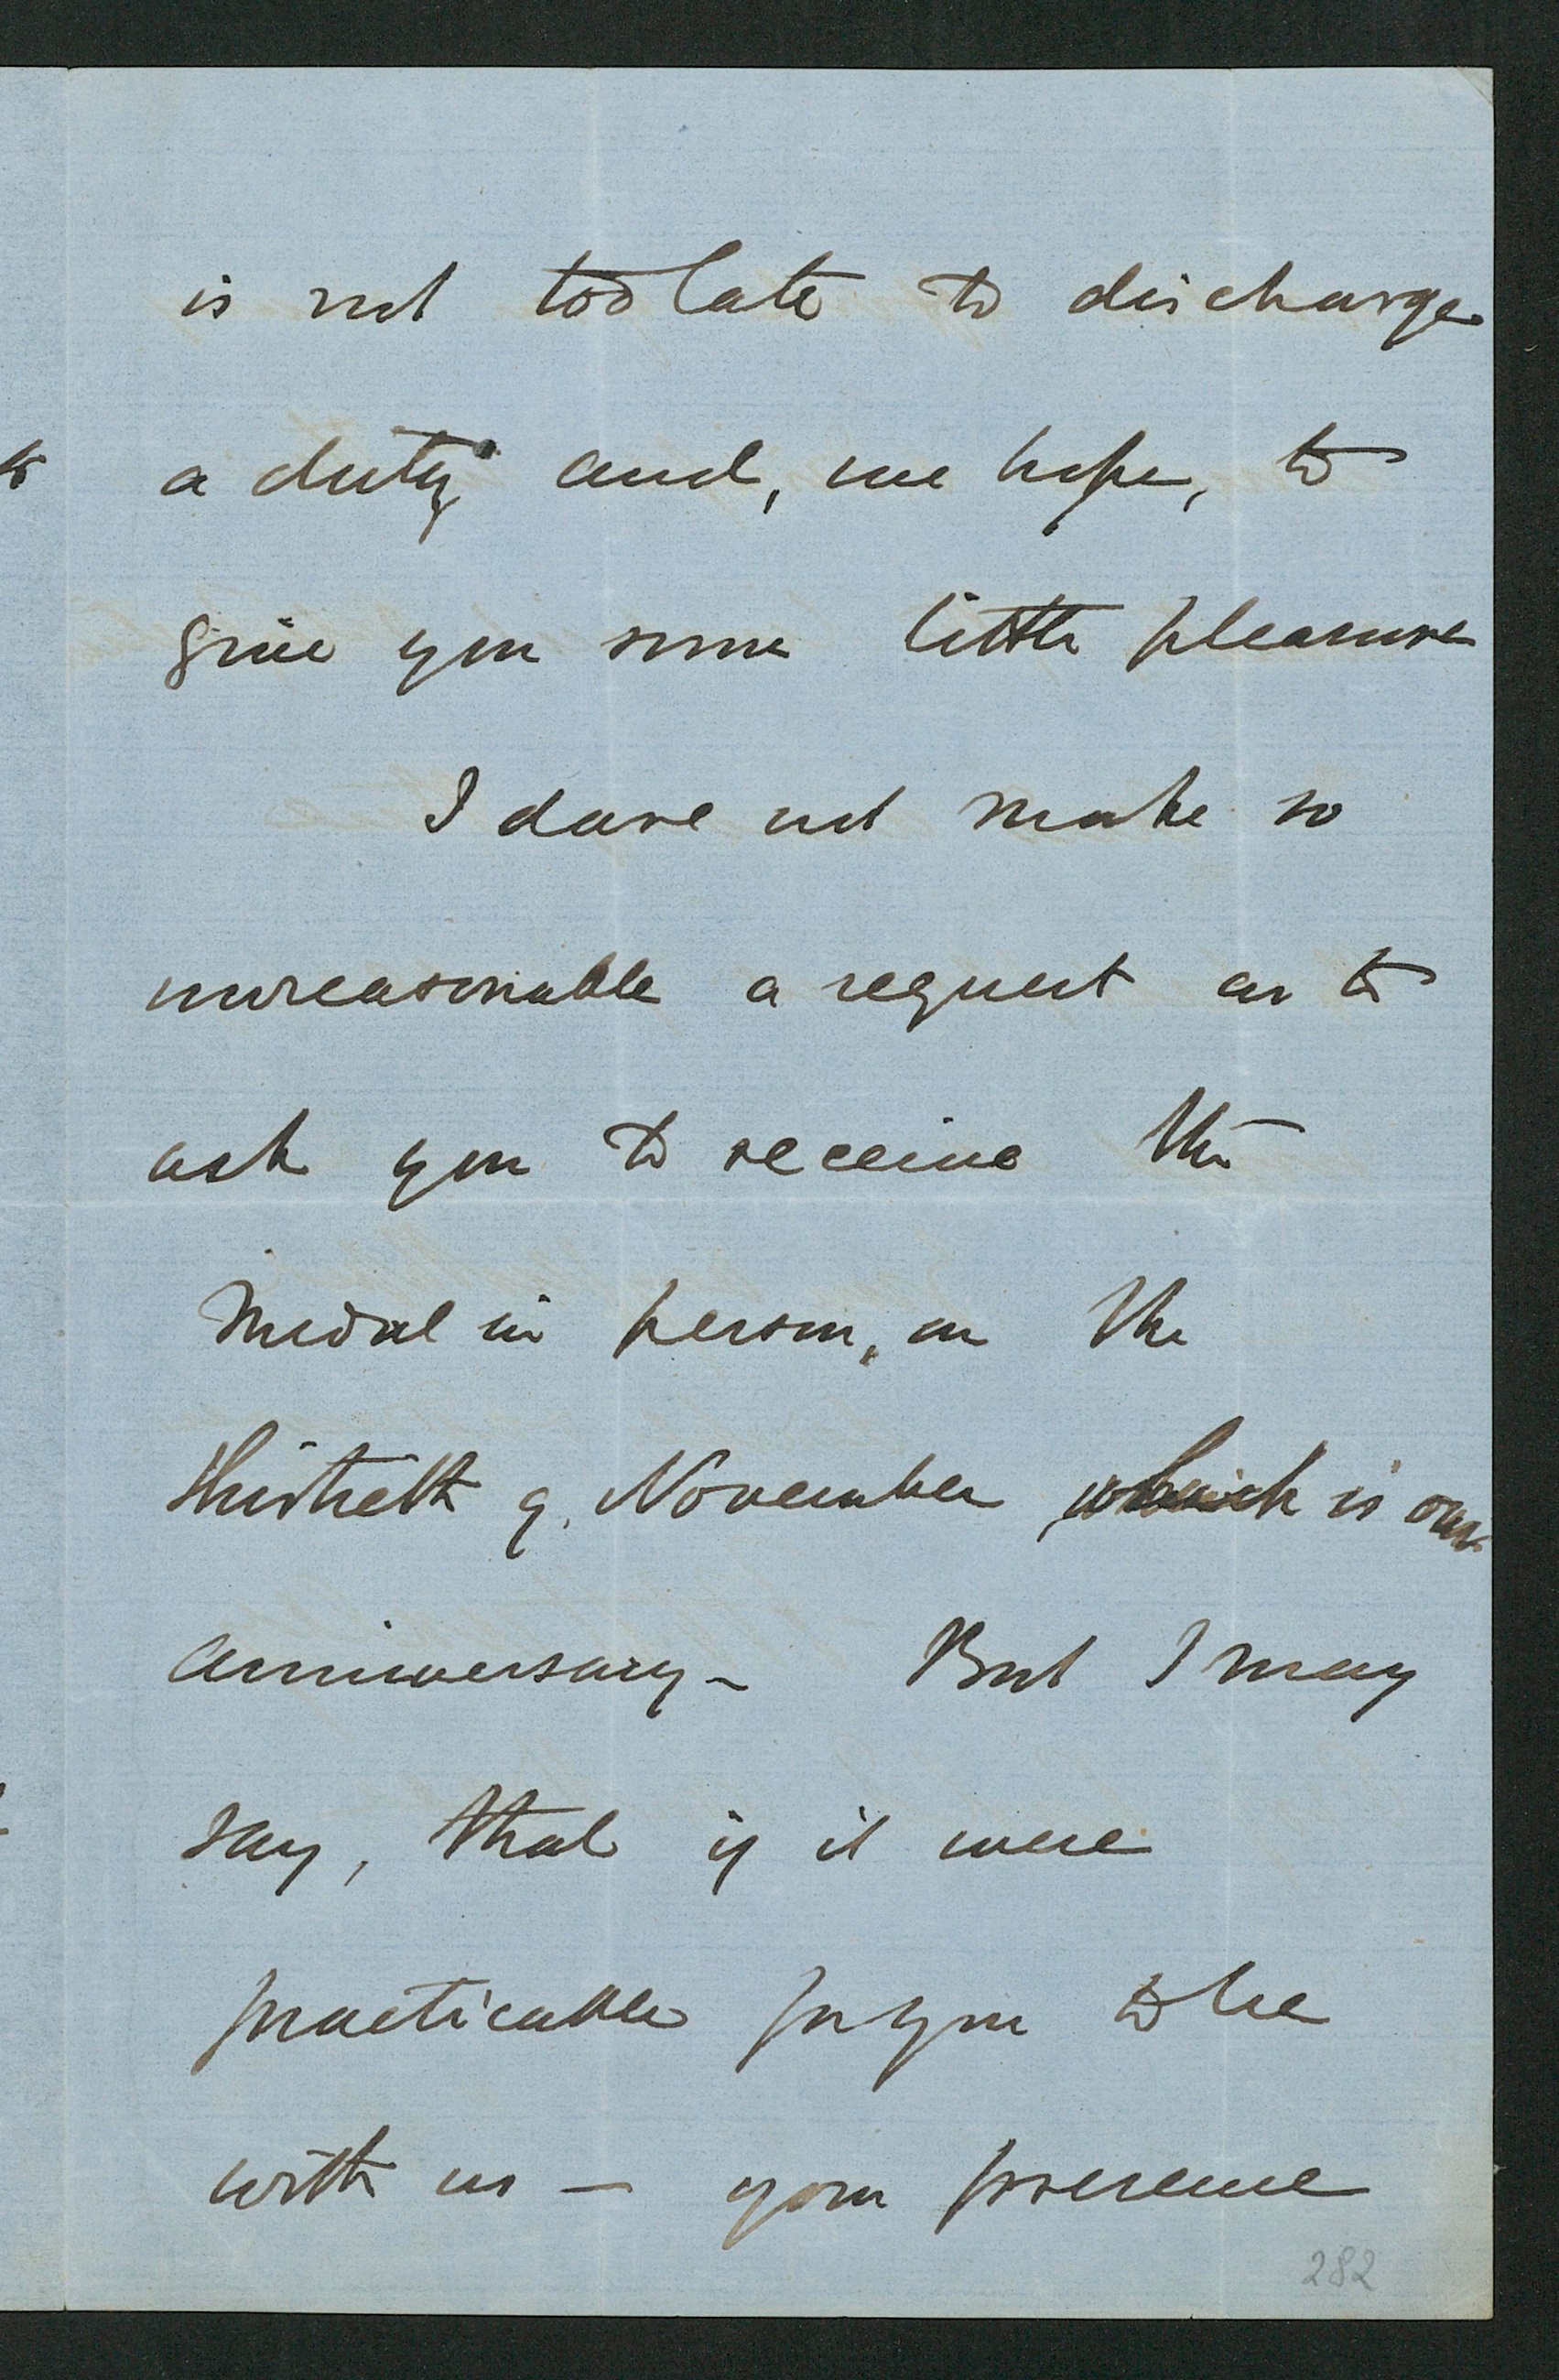 is not too late to discharge
a duty and, we hope, to
give you some little pleasure
I dare not make so
unreasonable a request as to
ask you to receive the
Medal in person, on the
thirtieth of November which is our
anniversary – But I may
say, that if it were
practicable for you to be
with us — your presence
282